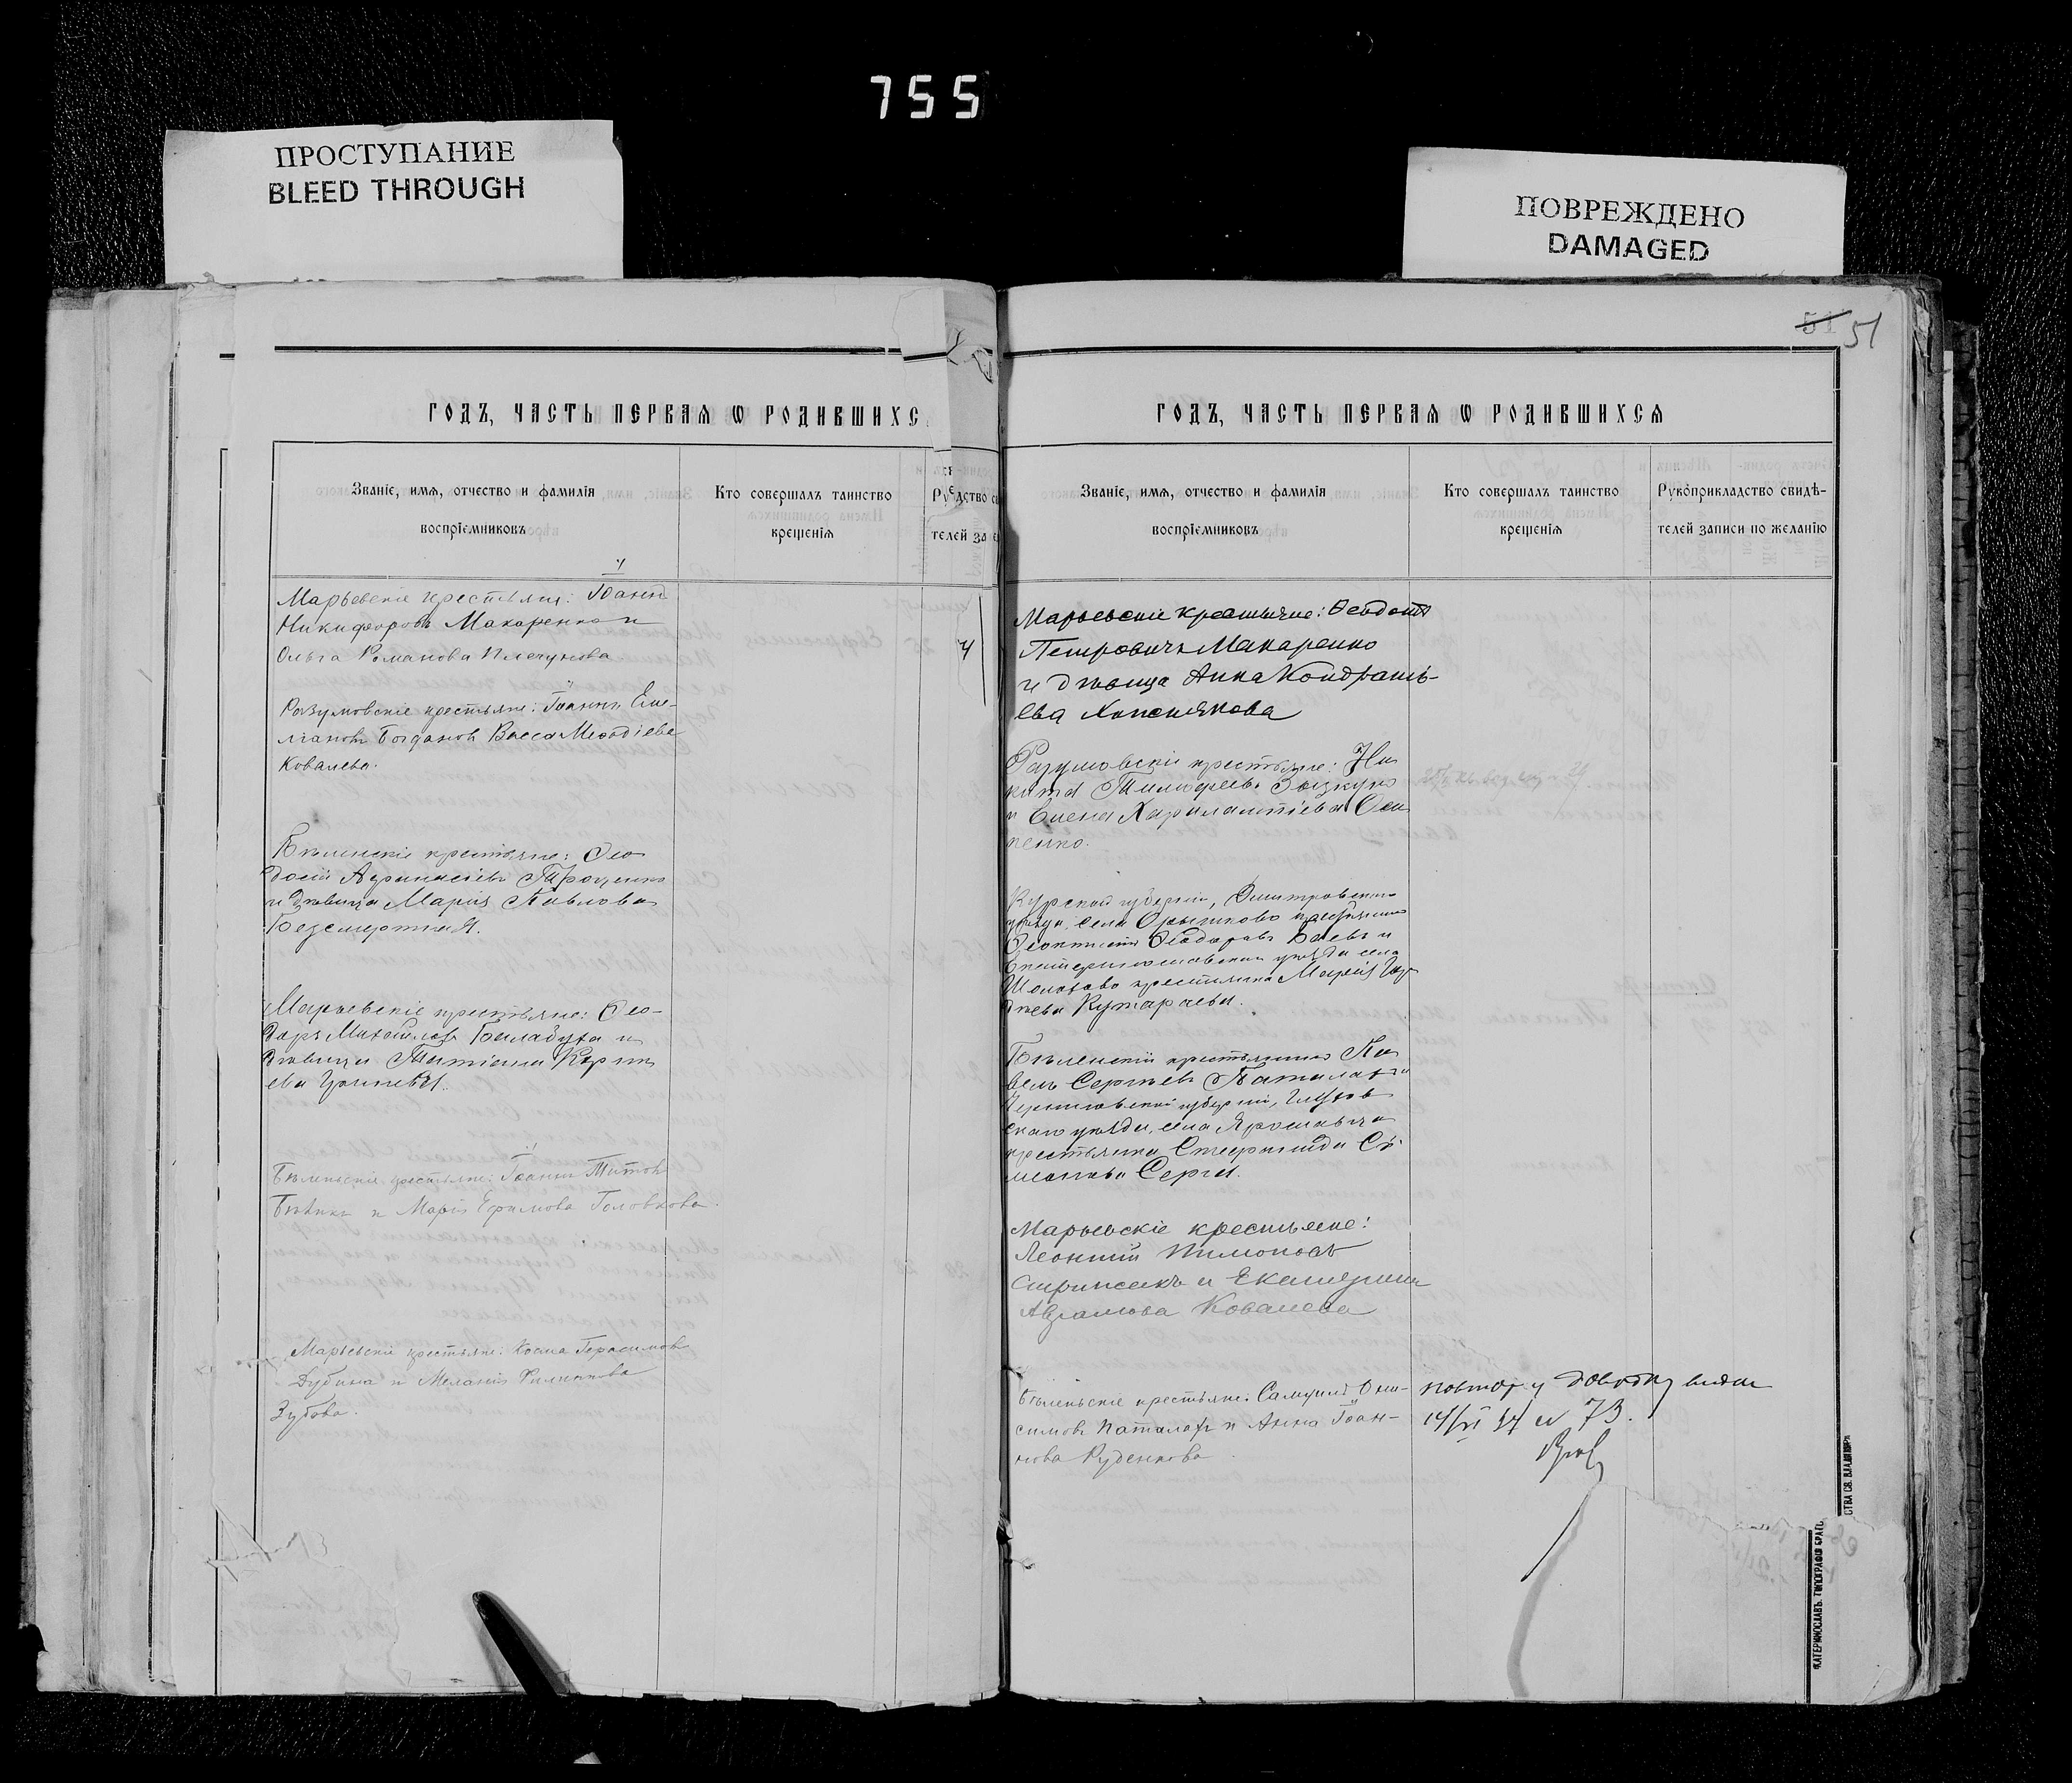 755
ПРОСТУПАНИЕ
BLEED THROUGH
ПОВРЕЖДЕНО
DAMAGED
ГОДЪ, ЧАСТЬ ПЕРВАЯ Ѡ РОДИВШИХС
Званіе, имя, отчество и фамилія
воспріемниковъ
Кто совершалъ таинство
крещенія
телей за
Марьевскіе крестьяне: Іоаннъ
Никифоровъ Макаренко и
Ольга Романова
Разумовскіе крестьяне: Іоаннъ Еме-
ліановъ Богдановъ Васса Меѳодіева
Ковалева.
Бѣленскіе крестьяне: Ѳео
досій Аѳанасіевъ Троценко
и дѣвица Марія Павлова
Безсмертная.
Марьевскіе крестьяне: Ѳео-
доръ Михайловъ Баладуха и
дѣвица Татіана Корнѣ
ева
Бѣленьскіе крестьяне: Іоаннъ Титовъ
и Марія Ефимова Головкова.
Марьевскіе крестьяне: Косма Герасимовъ
Дубина и Меланія Филиппова
Зубова.
51 51
ГОДЪ, ЧАСТЬ ПЕРВАЯ Ѡ РОДИВШИХСЯ
Званіе, имя, отчество и фамилія
воспріемниковъ
Кто совершалъ таинство
крещенія
Рукоприкладство свидѣ-
телей записи по желанію
Марьевскіе крестьяне: Ѳеодотъ
Петровичъ Макаренко
и дѣвица Анна Кондрать-
ева
Разумовскіе крестьяне: Ни
кита Тимоѳеевъ
и Елена Харалампіева Оси
пенко.
Курской губерніи, Дмитровскаго
уѣзда, села крестьянинъ
Ѳеоктистъ Ѳеодоровъ Баевъ и
Екатеринославскаго уѣзда села
Шолохово крестьянка Марія
Бѣленскій крестьянинъ Па
велъ Сергѣевъ Паталахъ и
Черниговской губерніи, Глухов
скаго уѣзда, села Ярославца
крестьянка Стефанида Си
меонова
Марьевскіе крестьяне:
Леонтій Пимоновъ
и Екатерина
Авраамова Ковалева
Бѣленьскіе крестьяне: Самуилъ Они-
симовъ Паталахъ и Анна Іоан-
нова Руденкова.
повтор
14/VI 34 № 73.
СТВА СВ. ВЛАДИМІРА
КАТЕРИНОСЛАВЪ. ТИПОГРАФІЯ БРАТ